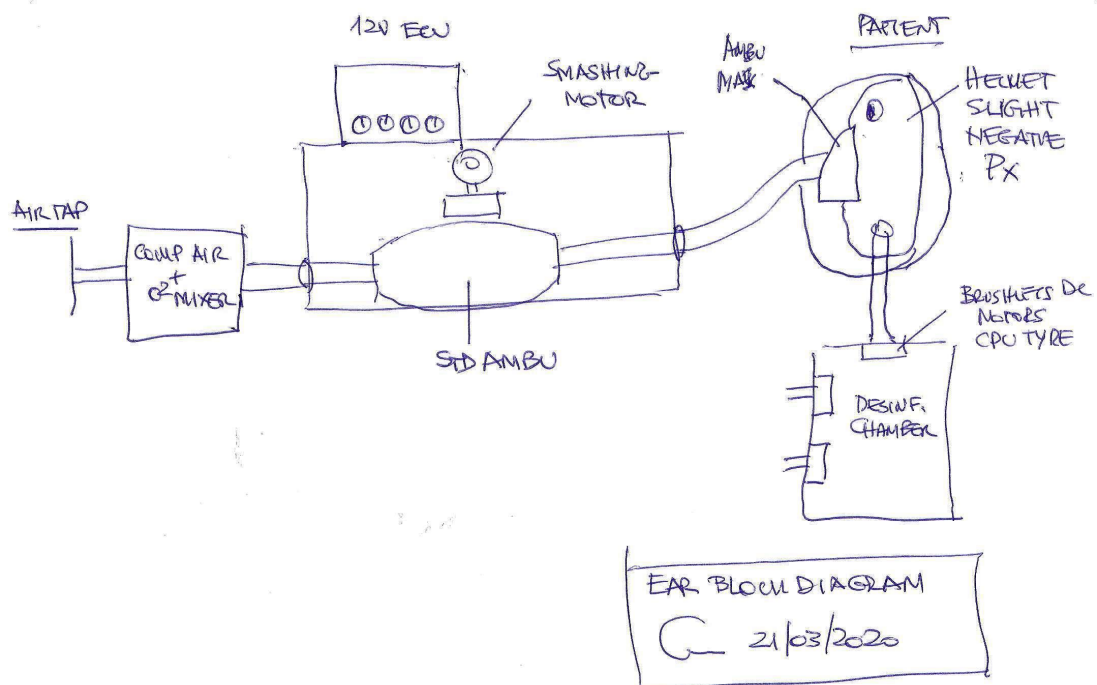 12V ECU
SMASHING-
MOTOR
AMBU
MASK
PATIENT
HELMET
SLIGHT
NEGATIVE
Px
AIR TAP
COMP AIR
+
O² MIXER
STD AMBU
BRUSHLETS DC
MOTORS
CPU TYPE
DESINF.
CHAMBER
EAR BLOCK DIAGRAM
21/03/2020